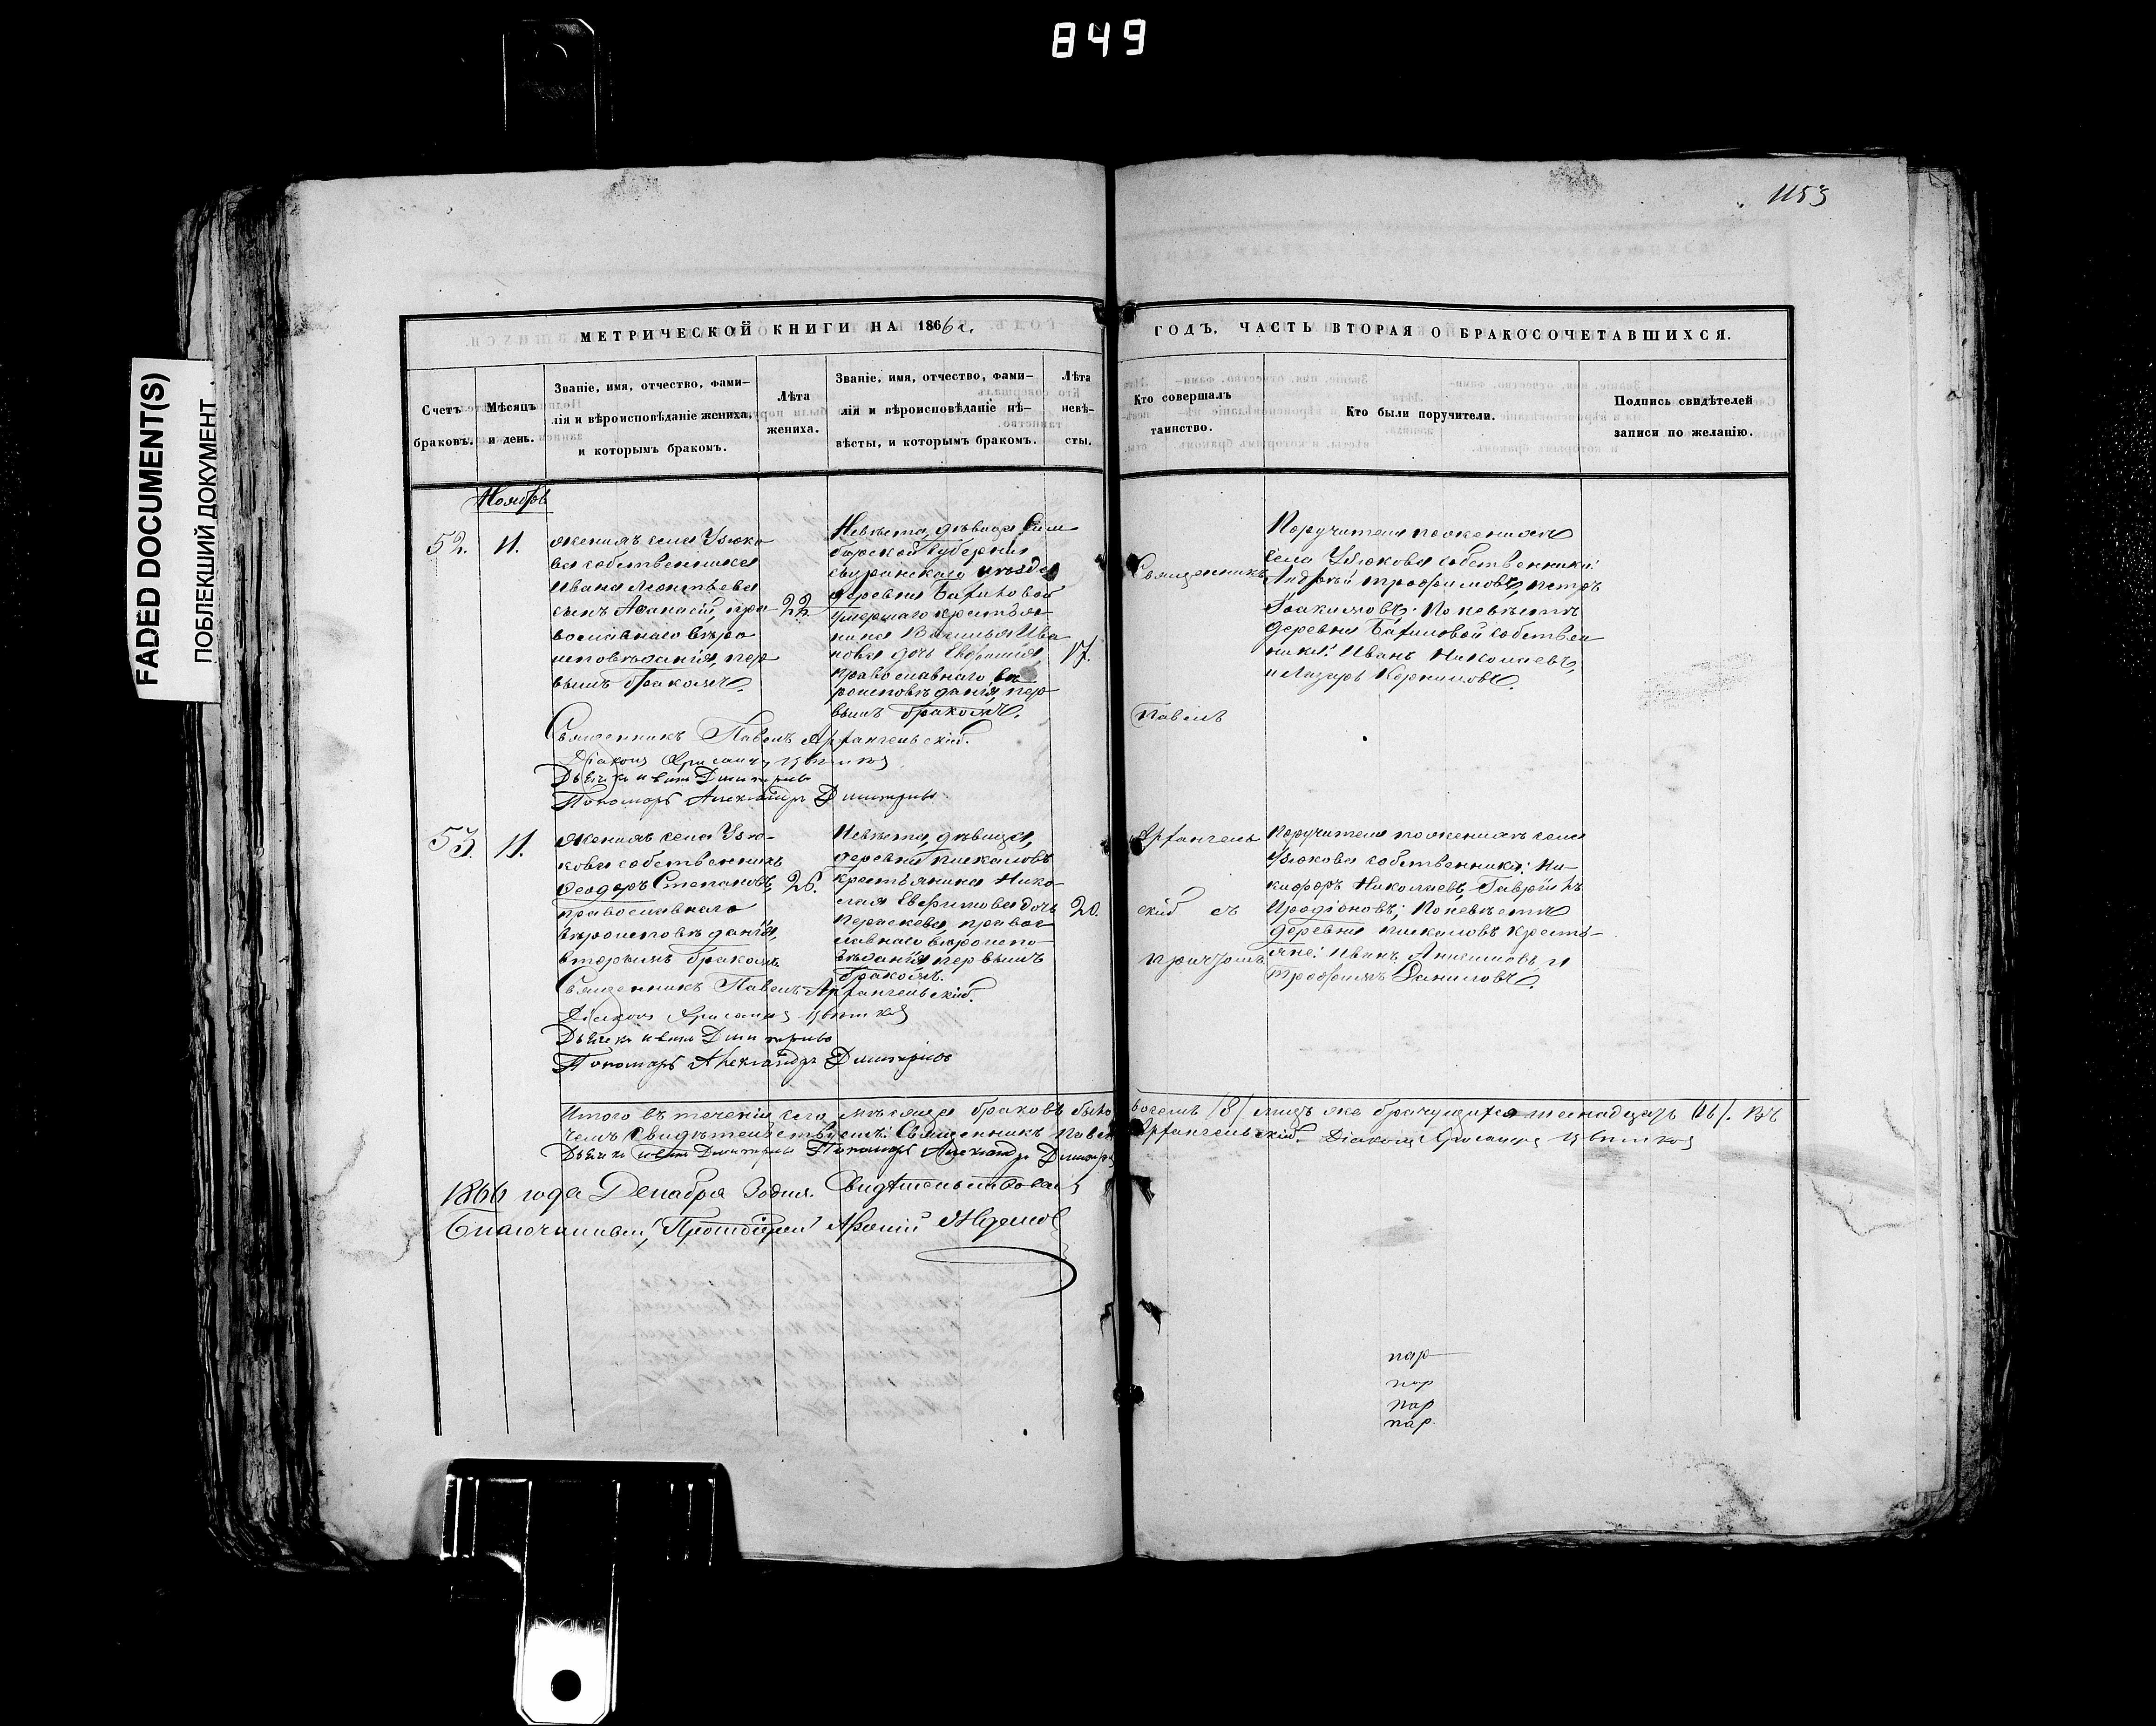 849
1153
FADED DOCUMENT(S)
ПОБЛЕКШИЙ ДОКУМЕНТ
МЕТРИЧЕСКОЙ КНИГИ НА 1866 г.
ГОДЪ, ЧАСТЬ ВТОРАЯ О БРАКОСОЧЕТАВШИХСЯ.
Счетъ браковъ.
Мѣсяцъ и день.
Званіе, имя, отчество, фами-
лія и вѣроисповѣданіе жениха,
и которымъ бракомъ.
Лѣта
жениха.
Званіе, имя, отчество, фами-
лія и вѣроисповѣданіе нѣ-
вѣсты, и которымъ бракомъ.
Лѣта
невѣ-
сты.
Кто совершалъ
таинство.
Кто были поручители.
Подпись свидѣтелей
записи по желанію.
Ноябрь
52.
11.
Женихъ села Узюко
ва собственника
Ивана Леонтьева
сынъ Афанасій, пра
вославнаго вѣро
исповѣданія, пер
вымъ бракомъ.
22
Невѣста, дѣвица Сим
бирской губерніи
сызранскаго уѣзда
деревни
умершаго крестья
нина Василья Ива
нова дочь
православнаго вѣ
роисповѣданія, пер
вымъ бракомъ.
17.
Священникъ
Павелъ
Поручители по женихѣ
села Узюкова собственники:
Андрей Трофимовъ, Петръ
Іоакимовъ; По невѣстѣ
деревни собствен
ники: Иванъ Николаевъ,
и Лазарь Корниловъ.
Священникъ Павелъ Архангельскій.
Діаконъ
Дьячекъ Иванъ Димитріевъ
Пономарь Александръ Димитріевъ
53.
11.
Женихъ села Узю-
кова собственникъ
Ѳеодоръ Степановъ,
православнаго
вѣроисповѣданія,
вторымъ бракомъ.
26.
Невѣста, дѣвица,
деревни Пискаловъ
крестьянина Нико-
лая дочь
Параскева, правос
лавнаго вѣроиспо-
вѣданія первымъ
бракомъ.
20.
Архангель
скій съ
причтомъ
Поручители по женихѣ села
Узюкова собственники: Ни-
кифоръ Николаевъ, Гавріилъ
Иродіоновъ; По невѣстѣ
деревни Пискаловъ кресть-
яне: Иванъ и
Трофимъ Даниловъ.
Священникъ Павелъ Архангельскій.
Діаконъ
Дьячекъ Иванъ Димитріевъ
Пономарь Александръ Димитріевъ
Итого въ теченіи сего мѣсяца браковъ было восемь /8/ лицъ же брачущихся шестнадцать /16/. Въ
чемъ свидѣтельствуемъ: Священникъ Павелъ Архангельскій. Діаконъ
Дьячекъ Иванъ Димитріевъ Пономарь Александръ Димитріевъ
1866 года Декабря 30 дня. Свидѣтельствовалъ
Благочинный, Протоіерей
пар
пар
пар
пар.